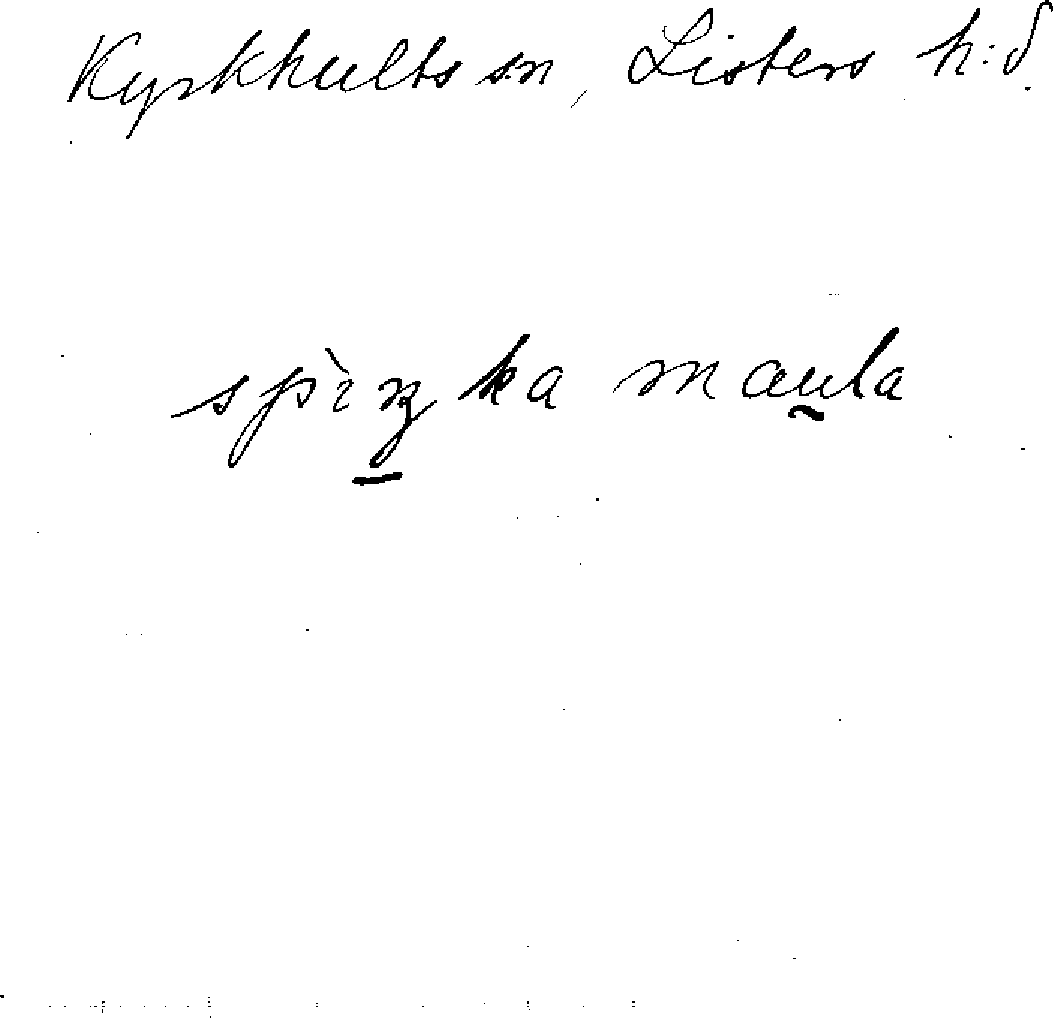 Kyrkhults sn, Listers h:d.
spìŋka maṵla